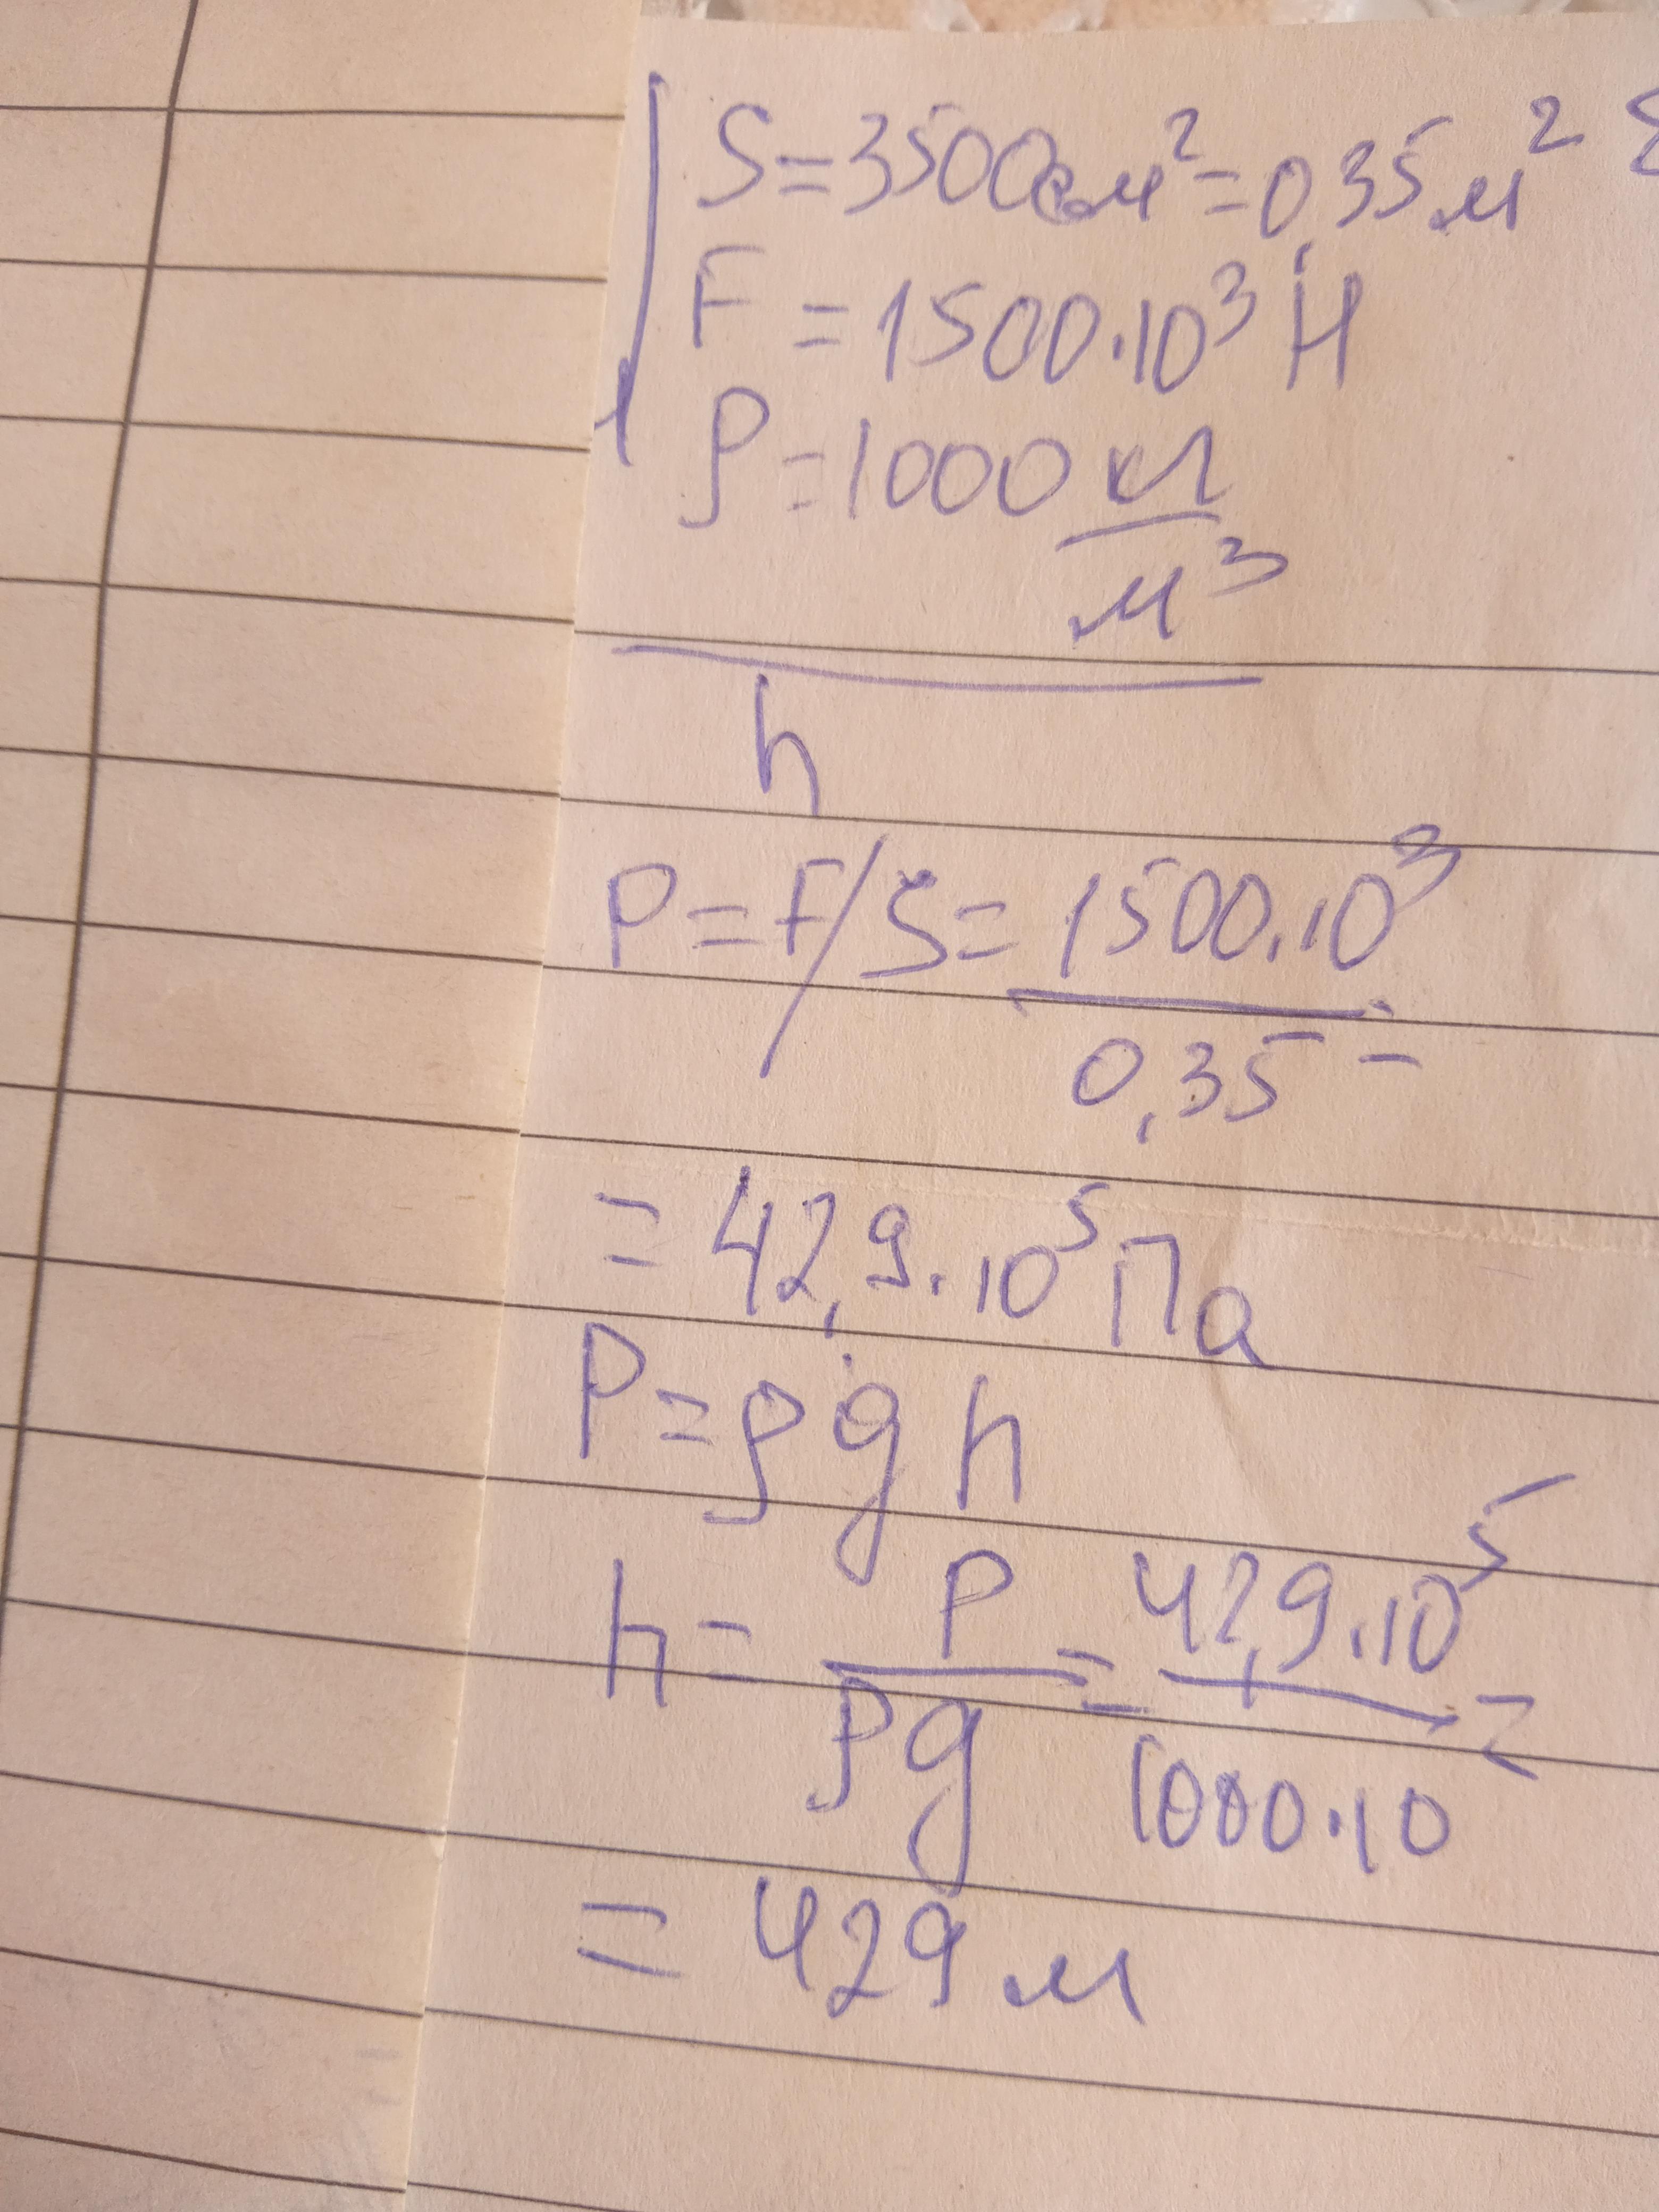 S=3500см²=0,35м²
F=1500·10³ Н
ρ=1000 кг/м³
h
P=F/S=1500·10³/0,35=
=42,9·10⁵Па
P=ρgh
h=P/ρg=42,9·10⁵/1000·10=
=429м